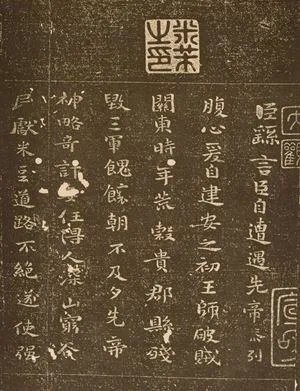 米芾之印
臣繇言臣自遭遇先帝忝列
腹心爰自建安之初王師破賊
關東時年荒穀貴郡縣殘
毀三軍餽饟朝不及夕先帝
神略奇計委任得人深山窮谷
民獻米豆道路不絕遂使強